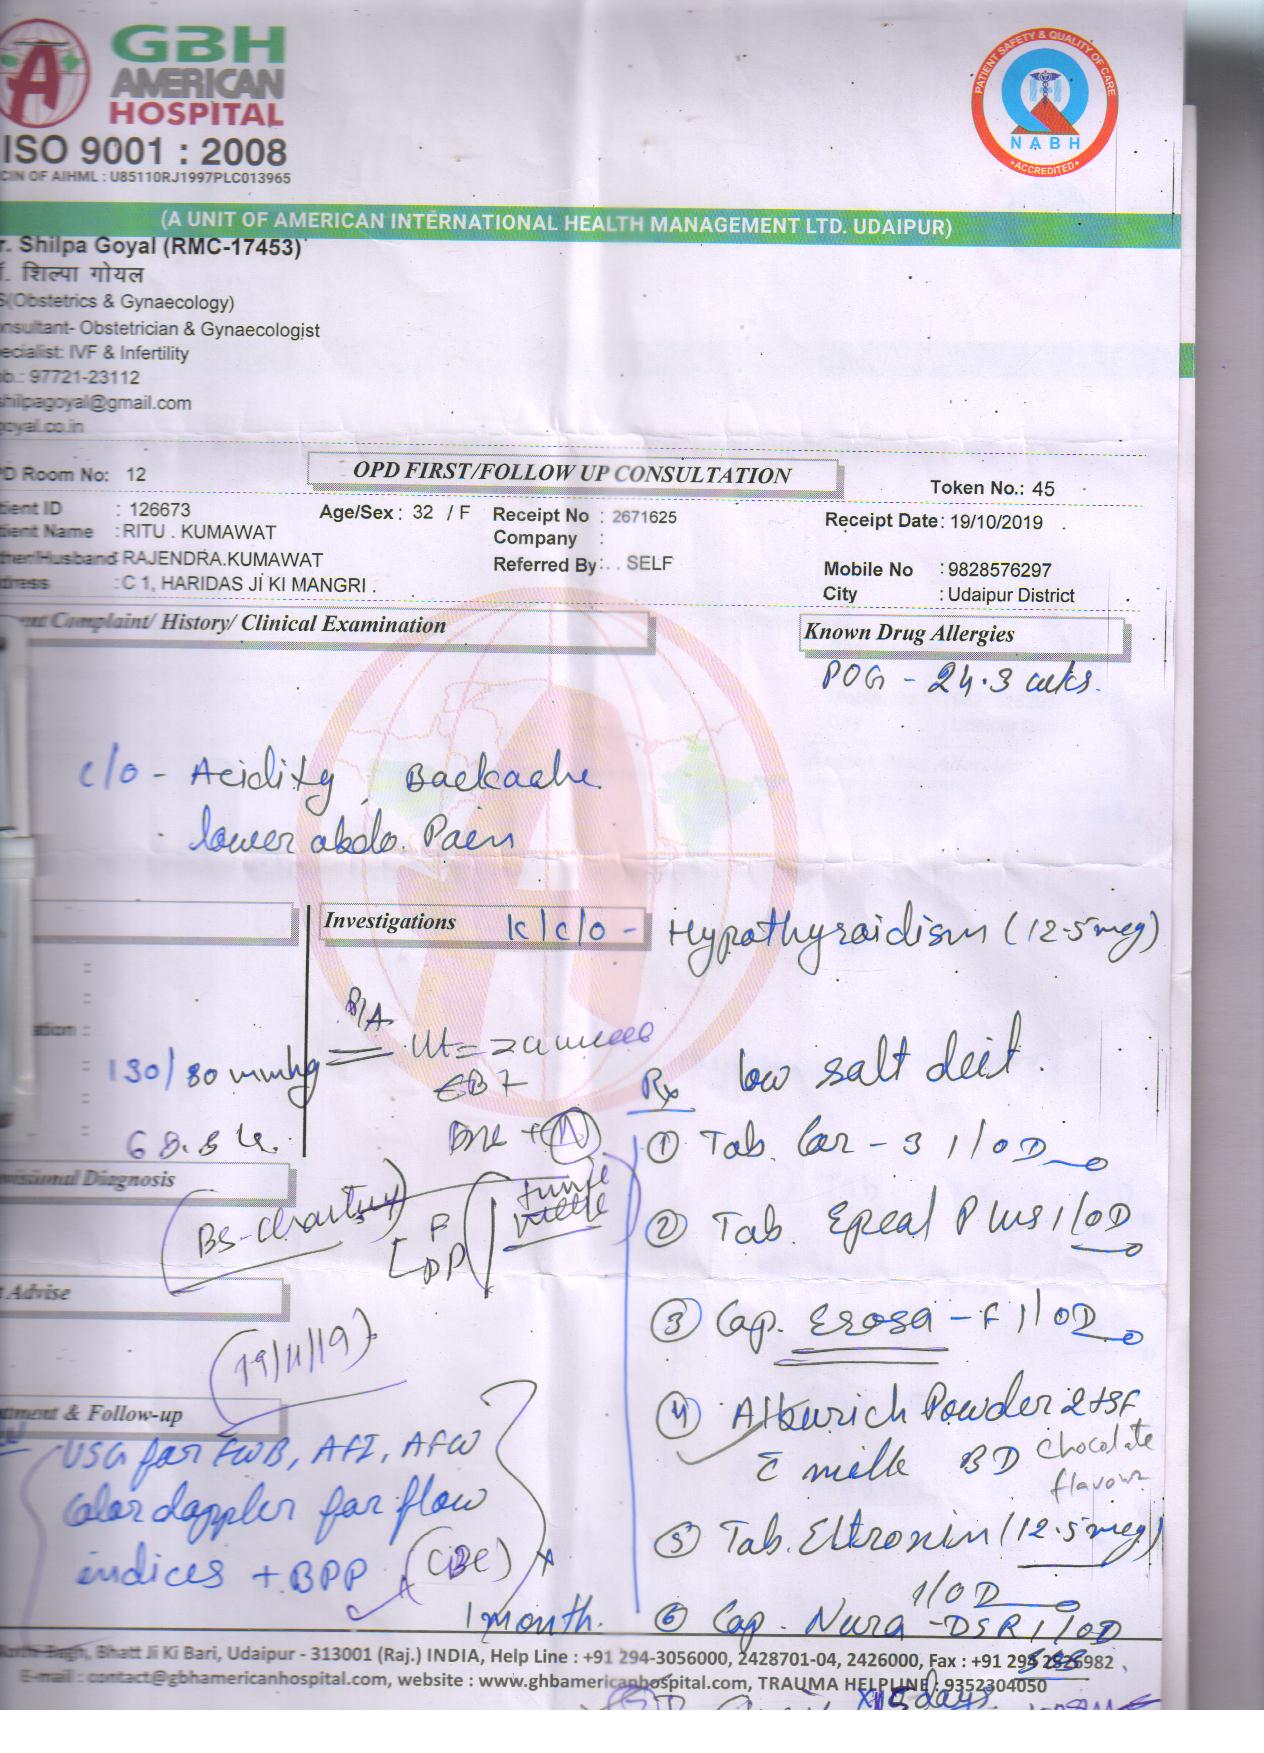 GBH
AMERICAN
HOSPITAL
ISO 9001 : 2008
CIN OF AIHML : U85110RJ1997PLC013965
PATIENT SAFETY & QUALITY OF CARE
NABH
ACCREDITED
(A UNIT OF AMERICAN INTERNATIONAL HEALTH MANAGEMENT LTD. UDAIPUR)
r. Shilpa Goyal (RMC-17453)
शिल्पा गोयल
S(Obstetrics & Gynaecology)
onsultant- Obstetrician & Gynaecologist
ecialist: IVF & Infertility
ob.: 97721-23112
shilpagoyal@gmail.com
goyal.co.in
PD Room No: 12
OPD FIRST/FOLLOW UP CONSULTATION
Token No.: 45
tient ID : 126673 Age/Sex : 32 / F Receipt No : 2671625 Receipt Date: 19/10/2019
tient Name : RITU . KUMAWAT Company :
ther/Husband RAJENDRA.KUMAWAT Referred By: . . SELF Mobile No : 9828576297
dress : C 1, HARIDAS JI KI MANGRI . City : Udaipur District
ent Complaint/ History/ Clinical Examination
Known Drug Allergies
POG - 24.3 wks.
c/o - Acidity, Backache
lower abdo. Pain
Investigations K/c/o - Hypothyroidism (12.5 mcg)
P/A
130/80 mmhg
low salt deit.
Rx
① Tab. Car - 3 1/OD
visional Diagnosis
BS-charting
② Tab. Plus 1/OD
Advise
③ Cap. Erosa - F 1/OD
19/11/19
tment & Follow-up
④ Powder 2 tsf
c milk BD chocolate
flavour
USG for FWB, AFI, AFW
Color doppler for flow
indices + BPP (CBC)
⑤ Tab. Eltroxin (12.5 mcg)
1/OD
1 month.
⑥ Cap. Nura - DSR 1/OD
Bagh, Bhatt Ji Ki Bari, Udaipur - 313001 (Raj.) INDIA, Help Line : +91 294-3056000, 2428701-04, 2426000, Fax : +91 294 2426982
E-mail : contact@gbhamericanhospital.com, website : www.ghbamericanhospital.com, TRAUMA HELPLINE : 9352304050
days